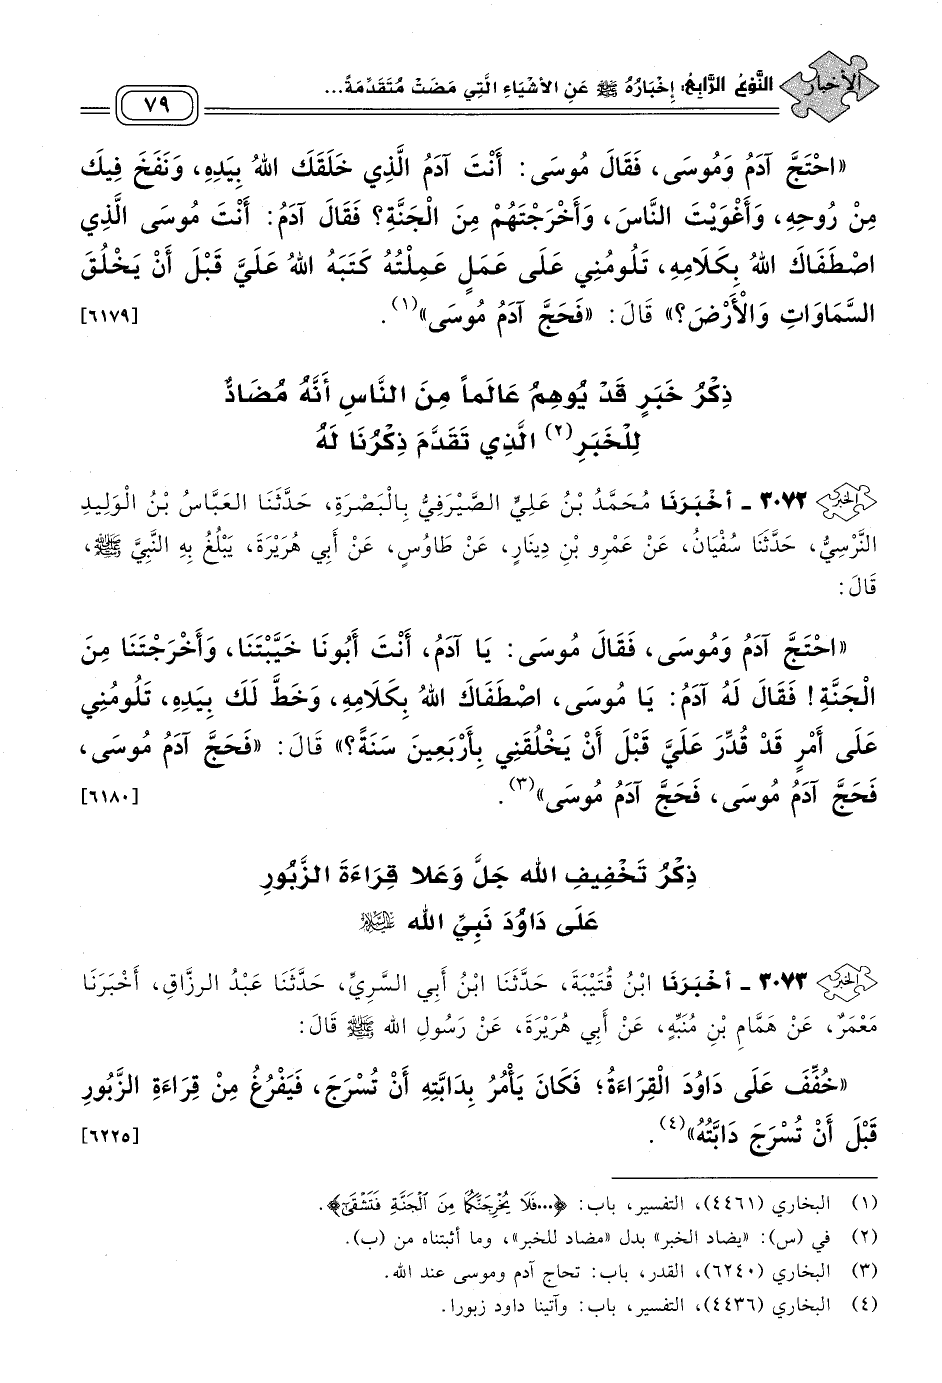 الأخبار
النَّوْعُ الرَّابِعُ: إِخْبَارُهُ ﷺ عَنِ الأَشْيَاءِ الَّتِي مَضَتْ مُتَقَدِّمَةً...
٧٩
«احْتَجَّ آدَمُ وَمُوسَى، فَقَالَ مُوسَى: أَنْتَ آدَمُ الَّذِي خَلَقَكَ اللهُ بِيَدِهِ، وَنَفَخَ فِيكَ
مِنْ رُوحِهِ، وَأَغْوَيْتَ النَّاسَ، وَأَخْرَجْتَهُمْ مِنَ الْجَنَّةِ؟ فَقَالَ آدَمُ: أَنْتَ مُوسَى الَّذِي
اصْطَفَاكَ اللهُ بِكَلَامِهِ، تَلُومُنِي عَلَى عَمَلٍ عَمِلْتُهُ كَتَبَهُ اللهُ عَلَيَّ قَبْلَ أَنْ يَخْلُقَ
السَّمَاوَاتِ وَالْأَرْضَ؟» قَالَ: «فَحَجَّ آدَمُ مُوسَى»(١). [٦١٧٩]
ذِكْرُ خَبَرٍ قَدْ يُوهِمُ عَالَماً مِنَ النَّاسِ أَنَّهُ مُضَادٌّ
لِلْخَبَرِ(٢) الَّذِي تَقَدَّمَ ذِكْرُنَا لَهُ
الخبر ٣٠٧٢ - أخْبَرَنَا مُحَمَّدُ بْنُ عَلِيٍّ الصَّيْرَفِيُّ بِالْبَصْرَةِ، حَدَّثَنَا العَبَّاسُ بْنُ الْوَلِيدِ
النَّرْسِيُّ، حَدَّثَنَا سُفْيَانُ، عَنْ عَمْرِو بْنِ دِينَارٍ، عَنْ طَاوُسٍ، عَنْ أَبِي هُرَيْرَةَ، يَبْلُغُ بِهِ النَّبِيَّ ﷺ،
قَالَ:
«احْتَجَّ آدَمُ وَمُوسَى، فَقَالَ مُوسَى: يَا آدَمُ، أَنْتَ أَبُونَا خَيَّبْتَنَا، وَأَخْرَجْتَنَا مِنَ
الْجَنَّةِ! فَقَالَ لَهُ آدَمُ: يَا مُوسَى، اصْطَفَاكَ اللهُ بِكَلَامِهِ، وَخَطَّ لَكَ بِيَدِهِ، تَلُومُنِي
عَلَى أَمْرٍ قَدْ قُدِّرَ عَلَيَّ قَبْلَ أَنْ يَخْلُقَنِي بِأَرْبَعِينَ سَنَةً؟» قَالَ: «فَحَجَّ آدَمُ مُوسَى،
فَحَجَّ آدَمُ مُوسَى، فَحَجَّ آدَمُ مُوسَى»(٣). [٦١٨٠]
ذِكْرُ تَخْفِيفِ الله جَلَّ وَعَلا قِرَاءَةَ الزَّبُورِ
عَلَى دَاوُدَ نَبِيِّ الله عليه السلام
الخبر ٣٠٧٣ - أخْبَرَنَا ابْنُ قُتَيْبَةَ، حَدَّثَنَا ابْنُ أَبِي السَّرِيِّ، حَدَّثَنَا عَبْدُ الرزَّاقِ، أَخْبَرَنَا
مَعْمَرٌ، عَنْ هَمَّامِ بْنِ مُنَبِّهٍ، عَنْ أَبِي هُرَيْرَةَ، عَنْ رَسُولِ الله ﷺ قَالَ:
«خُفِّفَ عَلَى دَاوُدَ الْقِرَاءَةُ؛ فَكَانَ يَأْمُرُ بِدَابَّتِهِ أَنْ تُسْرَجَ، فَيَفْرُغُ مِنْ قِرَاءَةِ الزَّبُورِ
قَبْلَ أَنْ تُسْرَجَ دَابَّتُهُ»(٤). [٦٢٢٥]
(١) البخاري (٤٤٦١)، التفسير، باب: ﴿...فَلَا يُخْرِجَنَّكُمَا مِنَ الْجَنَّةِ فَتَشْقَىٰ﴾.
(٢) في (س): «يضاد الخبر» بدل «مضاد للخبر»، وما أثبتناه من (ب).
(٣) البخاري (٦٢٤٠)، القدر، باب: تحاج آدم وموسى عند الله.
(٤) البخاري (٤٤٣٦)، التفسير، باب: وآتينا داود زبورا.